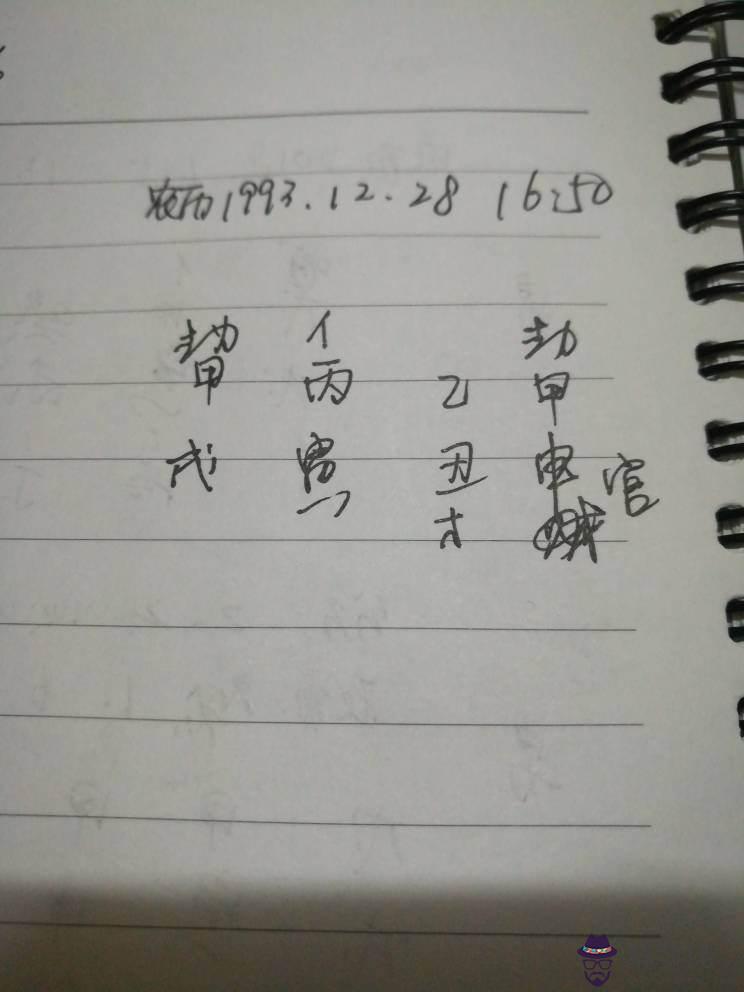 农历1993.12.28 16:50
劫 亻 劫
甲 丙 乙 甲
戌 寅 丑 申 官
才